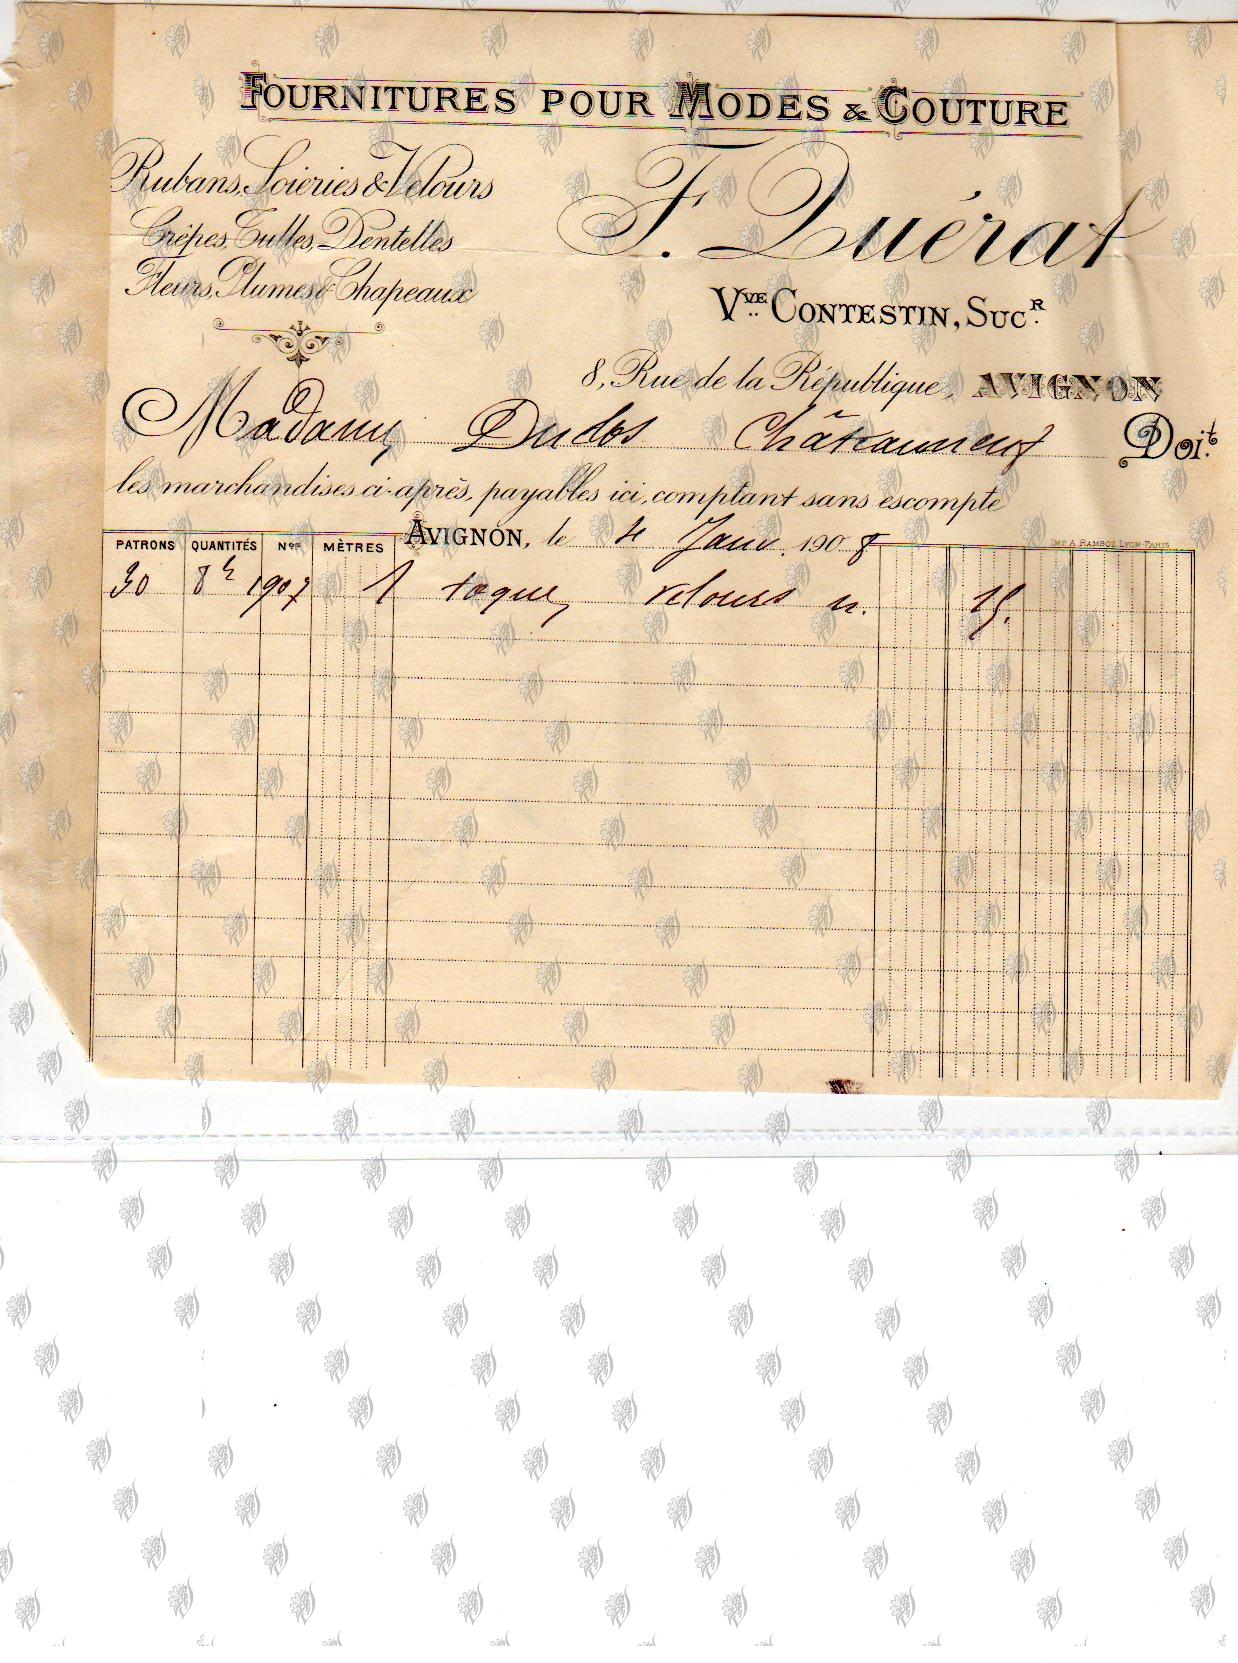 FOURNITURES POUR MODES & COUTURE
Rubans, Soieries & Velours
Crêpes, Tulles, Dentelles
Fleurs, Plumes & Chapeaux
F. Quérat
Vve CONTESTIN, Sucr.
8, Rue de la République, AVIGNON
Madame Duclos Châteauneuf Doit
les marchandises ci-après, payables ici, comptant sans escompte
AVIGNON, le 4 Janv. 1908
IMP. A. RAMBOZ LYON-PARIS
PATRONS QUANTITÉS Nos MÈTRES
30 8b 1907 1 toque velours n. 15.